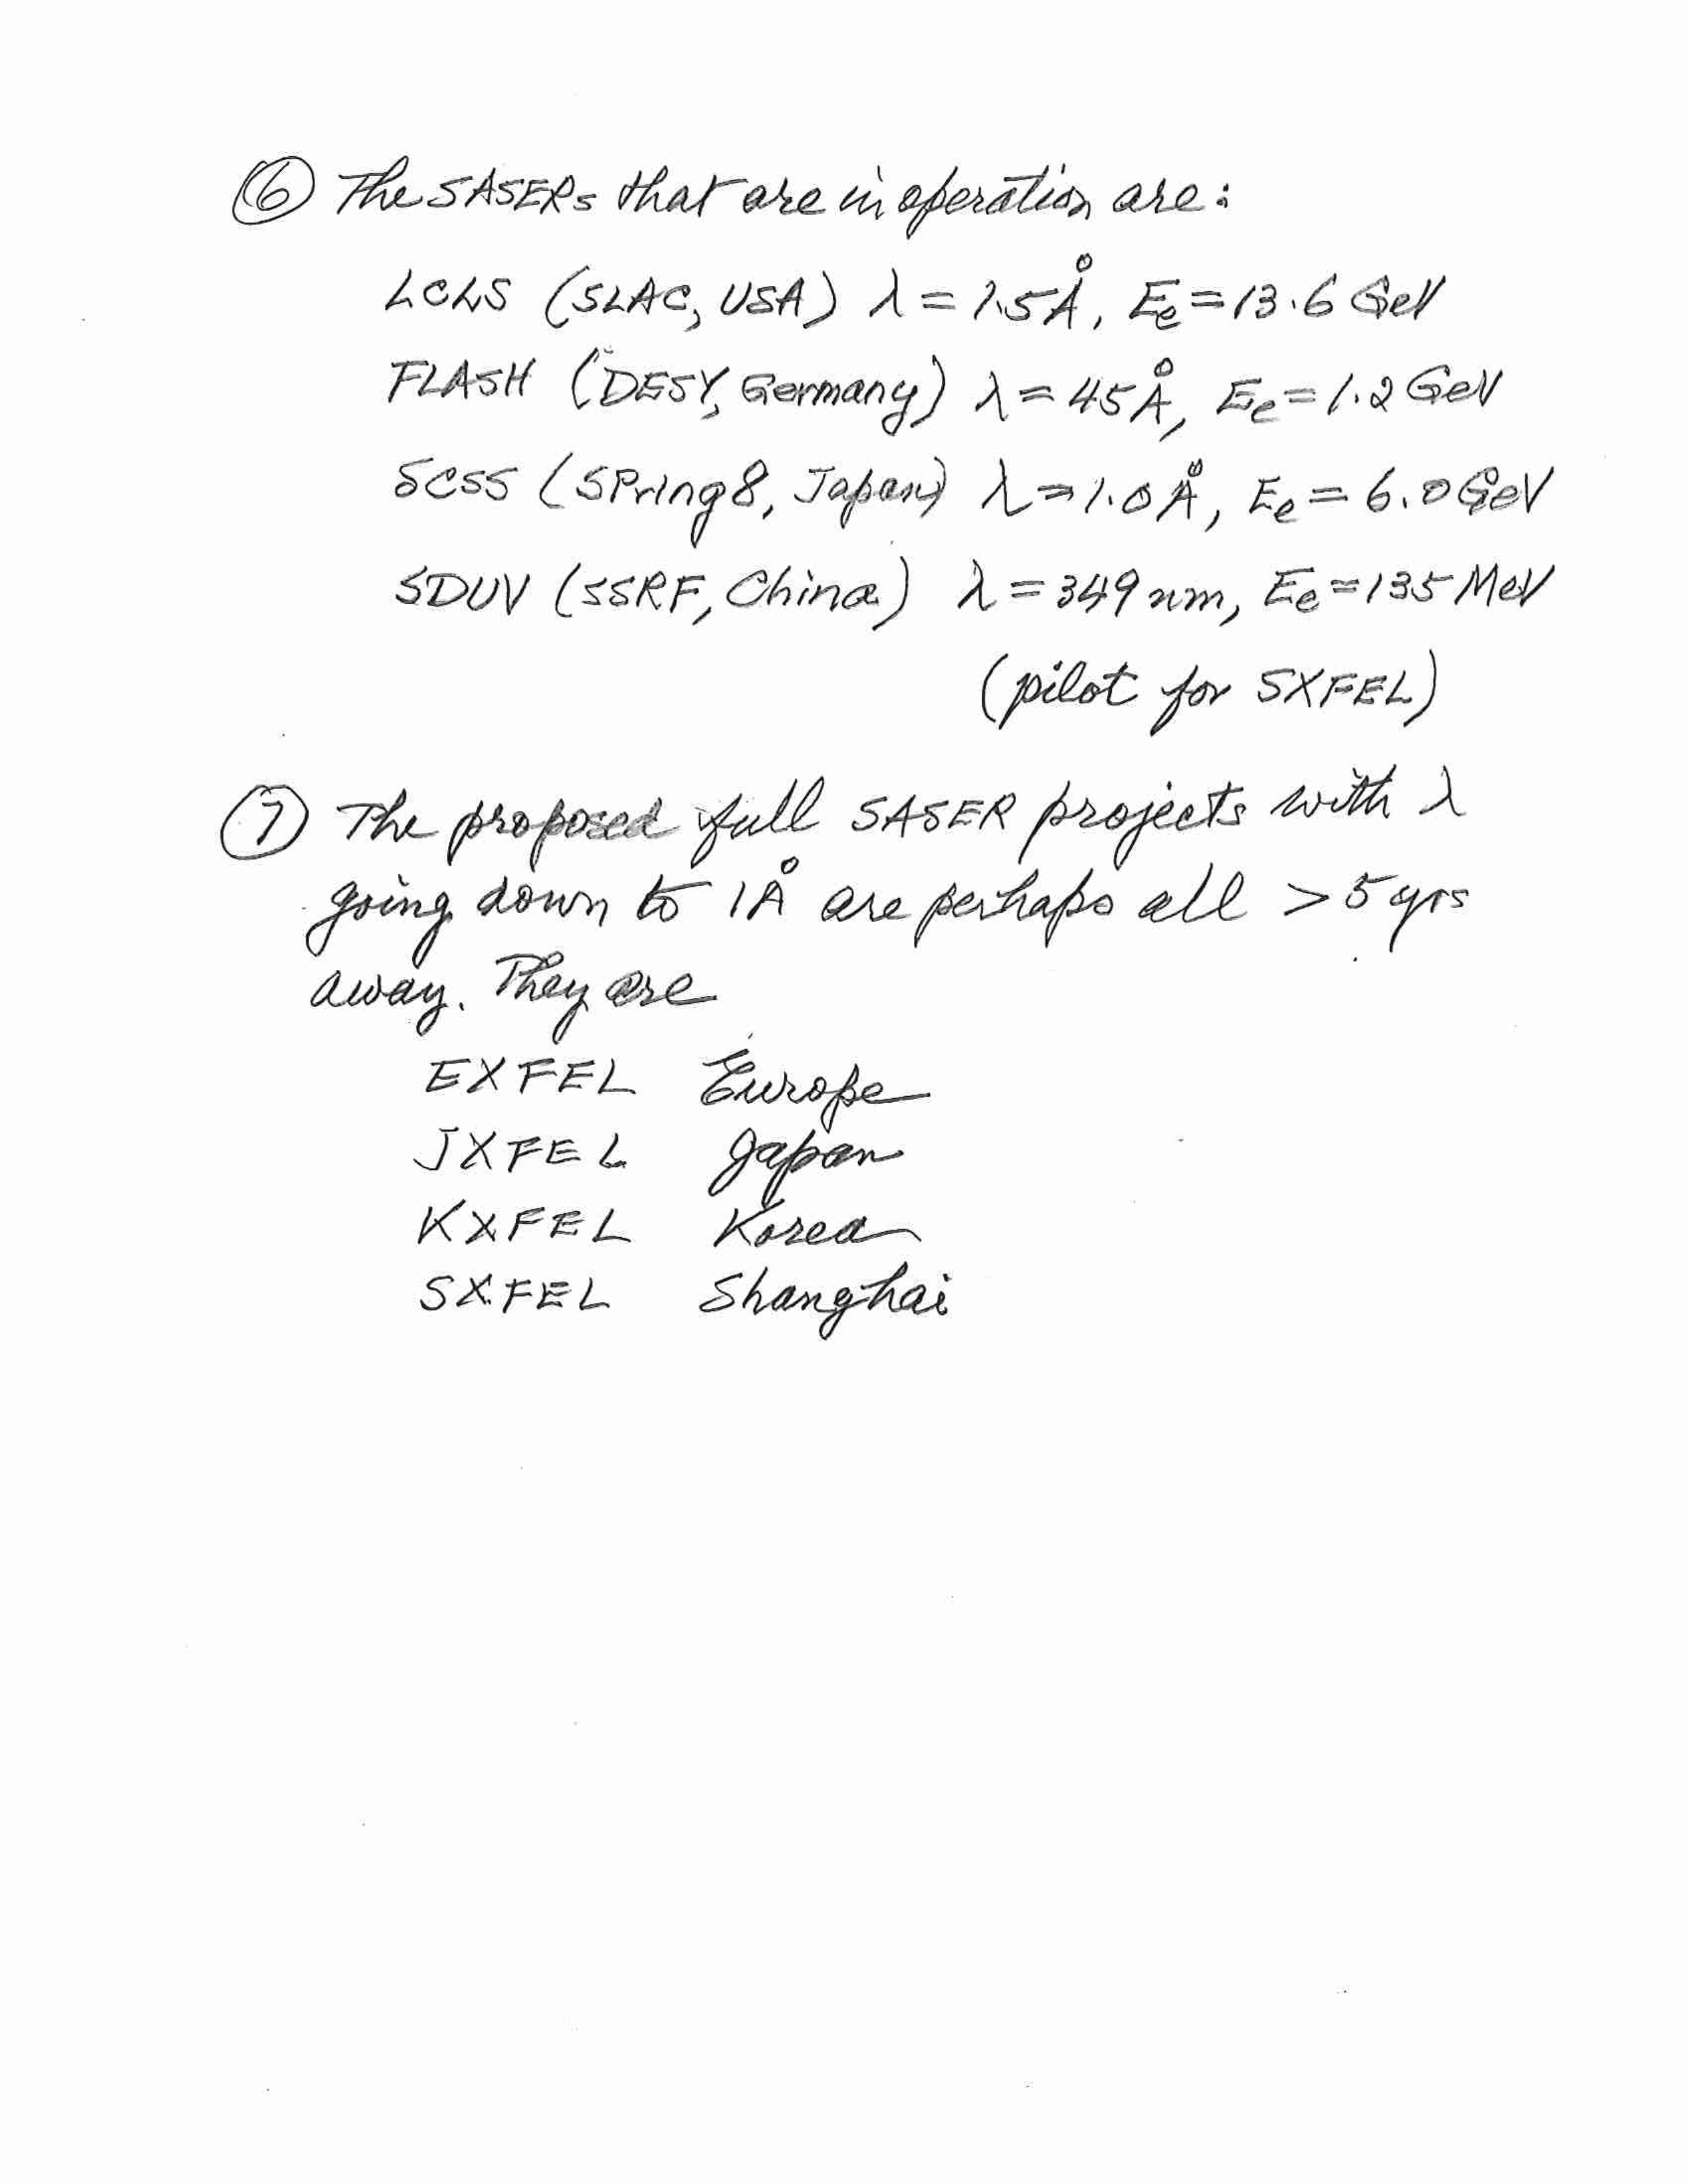 ⑥ The SASERs that are in operation are:
LCLS (SLAC, USA) λ = 1.5Å, Ee = 13.6 GeV
FLASH (DESY, Germany) λ = 45Å, Ee = 1.2 GeV
SCSS (SPring8, Japan) λ = 1.0Å, Ee = 6.0 GeV
SDUV (SSRF, China) λ = 349 nm, Ee = 135 MeV
(pilot for SXFEL)
⑦ The proposed full SASER projects with λ
going down to 1Å are perhaps all > 5 yrs
away. They are
EXFEL Europe
JXFEL Japan
KXFEL Korea
SXFEL Shanghai